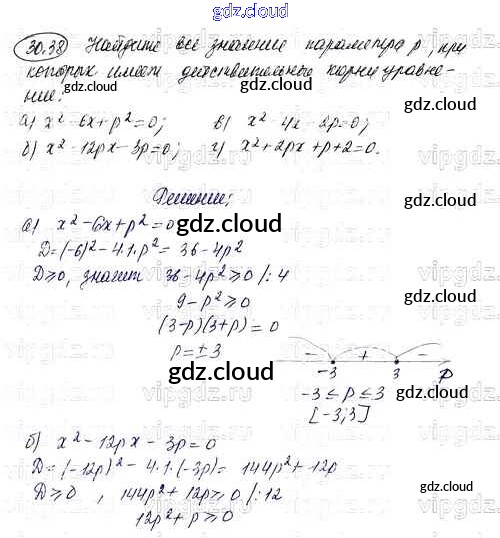 gdz.cloud
30.38 Найдите все значение параметра p, при
которых имеет действительные корни уравне-
ние:
а) x² - 6x + p² = 0; в) x² - 4x - 2p = 0;
б) x² - 12px - 3p = 0; г) x² + 2px + p + 2 = 0.
Решение:
а) x² - 6x + p² = 0
gdz.cloud
D = (-6)² - 4·1·p² = 36 - 4p²
D ≥ 0, значит 36 - 4p² ≥ 0 /: 4
9 - p² ≥ 0
(3-p)(3+p) = 0
p = ± 3
- + -
-3 3 p
gdz.cloud
-3 ≤ p ≤ 3
[-3; 3]
gdz.cloud
б) x² - 12px - 3p = 0
D = (-12p)² - 4·1·(-3p) = 144p² + 12p
D ≥ 0, 144p² + 12p ≥ 0 /: 12
gdz.cloud
12p² + p ≥ 0